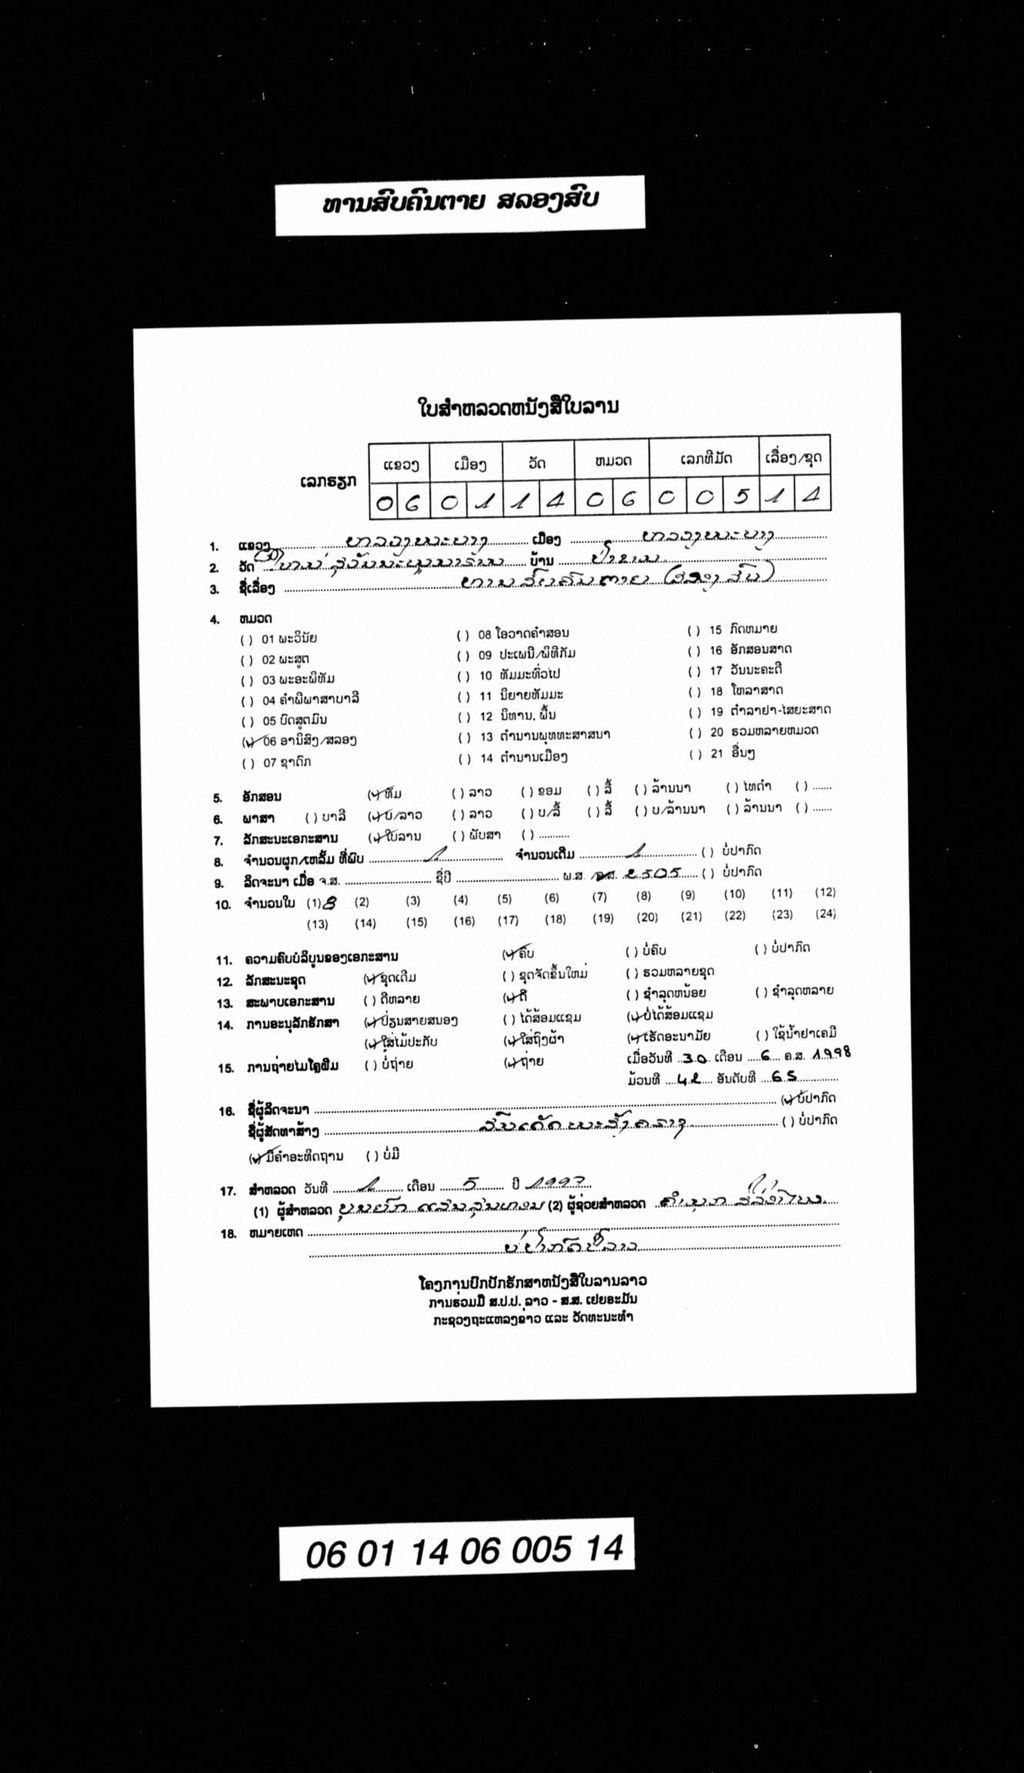 ທານສົບຄົນຕາຍ ສລອງສົບ
ໃບສຳຫລວດຫນັງສືໃບລານ
ເລກຮຽກ ແຂວງ ເມືອງ ວັດ ຫມວດ ເລກທີມັດ ເລື່ອງ/ຊຸດ
0 6 0 1 1 4 0 6 0 0 5 1 4
1. ແຂວງ ຫລວງພະບາງ ເມືອງ ຫລວງພະບາງ
2. ວັດ ໃຫມ່ ສຸວັນນະພູມາຣາມ ບ້ານ ປ່າຂາມ
3. ຊື່ເລື່ອງ ທານສົບຄົນຕາຍ (ສລອງສົບ)
4. ຫມວດ
( ) 01 ພະວິນັຍ ( ) 08 ໂອວາດຄຳສອນ ( ) 15 ກົດຫມາຍ
( ) 02 ພະສູດ ( ) 09 ປະເພນີ/ພິທີກັມ ( ) 16 ອັກສອນສາດ
( ) 03 ພະອະພິທັມ ( ) 10 ທັມມະທົ່ວໄປ ( ) 17 ວັນນະຄະດີ
( ) 04 ຄຳພີພາສາບາລີ ( ) 11 ນິຍາຍທັມມະ ( ) 18 ໂຫລາສາດ
( ) 05 ບົດສູດມົນ ( ) 12 ນິທານ, ພື້ນ ( ) 19 ຕຳລາຢາ-ໄສຍະສາດ
(✓) 06 ອານິສົງ/ສລອງ ( ) 13 ຕຳນານພຸທທະສາສນາ ( ) 20 ຮວມຫລາຍຫມວດ
( ) 07 ຊາດົກ ( ) 14 ຕຳນານເມືອງ ( ) 21 ອື່ນໆ
5. ອັກສອນ (✓) ທັມ ( ) ລາວ ( ) ຂອມ ( ) ລື້ ( ) ລ້ານນາ ( ) ໄທດຳ ( ) ......
6. ພາສາ ( ) ບາລີ (✓) ບ/ລາວ ( ) ລາວ ( ) ບ/ລື້ ( ) ລື້ ( ) ບ/ລ້ານນາ ( ) ລ້ານນາ ( ) ......
7. ລັກສະນະເອກະສານ (✓) ໃບລານ ( ) ພັບສາ ( ) ..........
8. ຈຳນວນຜູກ/ເຫລັ້ມ ທີ່ພົບ 1 ຈຳນວນເດີມ 1 ( ) ບໍ່ປາກົດ
9. ລິດຈະນາ ເມື່ອ ຈ.ສ. ຊື່ປີ ພ.ສ. 2505 ( ) ບໍ່ປາກົດ
10. ຈຳນວນໃບ (1) 8 (2) (3) (4) (5) (6) (7) (8) (9) (10) (11) (12)
(13) (14) (15) (16) (17) (18) (19) (20) (21) (22) (23) (24)
11. ຄວາມຄົບບໍລິບູນຂອງເອກະສານ (✓) ຄົບ ( ) ບໍ່ຄົບ ( ) ບໍ່ປາກົດ
12. ລັກສະນະຊຸດ (✓) ຊຸດເດີມ ( ) ຊຸດຈັດຂຶ້ນໃຫມ່ ( ) ຮວມຫລາຍຊຸດ
13. ສະພາບເອກະສານ ( ) ດີຫລາຍ (✓) ດີ ( ) ຊຳລຸດຫນ້ອຍ ( ) ຊຳລຸດຫລາຍ
14. ການອະນຸລັກຮັກສາ (✓) ປ່ຽນສາຍສນອງ ( ) ໄດ້ສ້ອມແຊມ (✓) ບໍ່ໄດ້ສ້ອມແຊມ
(✓) ໃສ່ໄມ້ປະກັບ (✓) ໃສ່ຖົງຜ້າ (✓) ເຮັດອະນາມັຍ ( ) ໃຊ້ນ້ຳຢາເຄມີ
15. ການຖ່າຍໄມໂຄຼຟິມ ( ) ບໍ່ຖ່າຍ (✓) ຖ່າຍ ເມື່ອວັນທີ 30 ເດືອນ 6 ຄ.ສ. 1998
ມ້ວນທີ 42 ອັນດັບທີ 65
16. ຊື່ຜູ້ລິດຈະນາ (✓) ບໍ່ປາກົດ
ຊື່ຜູ້ສັດທາສ້າງ ( ) ບໍ່ປາກົດ
(✓) ມີຄຳອະທິດຖານ ( ) ບໍ່ມີ
17. ສຳຫລວດ ວັນທີ 1 ເດືອນ 5 ປີ 1997
(1) ຜູ້ສຳຫລວດ (2) ຜູ້ຊ່ວຍສຳຫລວດ
18. ຫມາຍເຫດ
ໂຄງການປົກປັກຮັກສາຫນັງສືໃບລານລາວ
ການຮ່ວມມື ສ.ປ.ປ. ລາວ - ສ.ສ. ເຢຍຣະມັນ
ກະຊວງຖະແຫລງຂ່າວ ແລະ ວັດທະນະທຳ
06 01 14 06 005 14